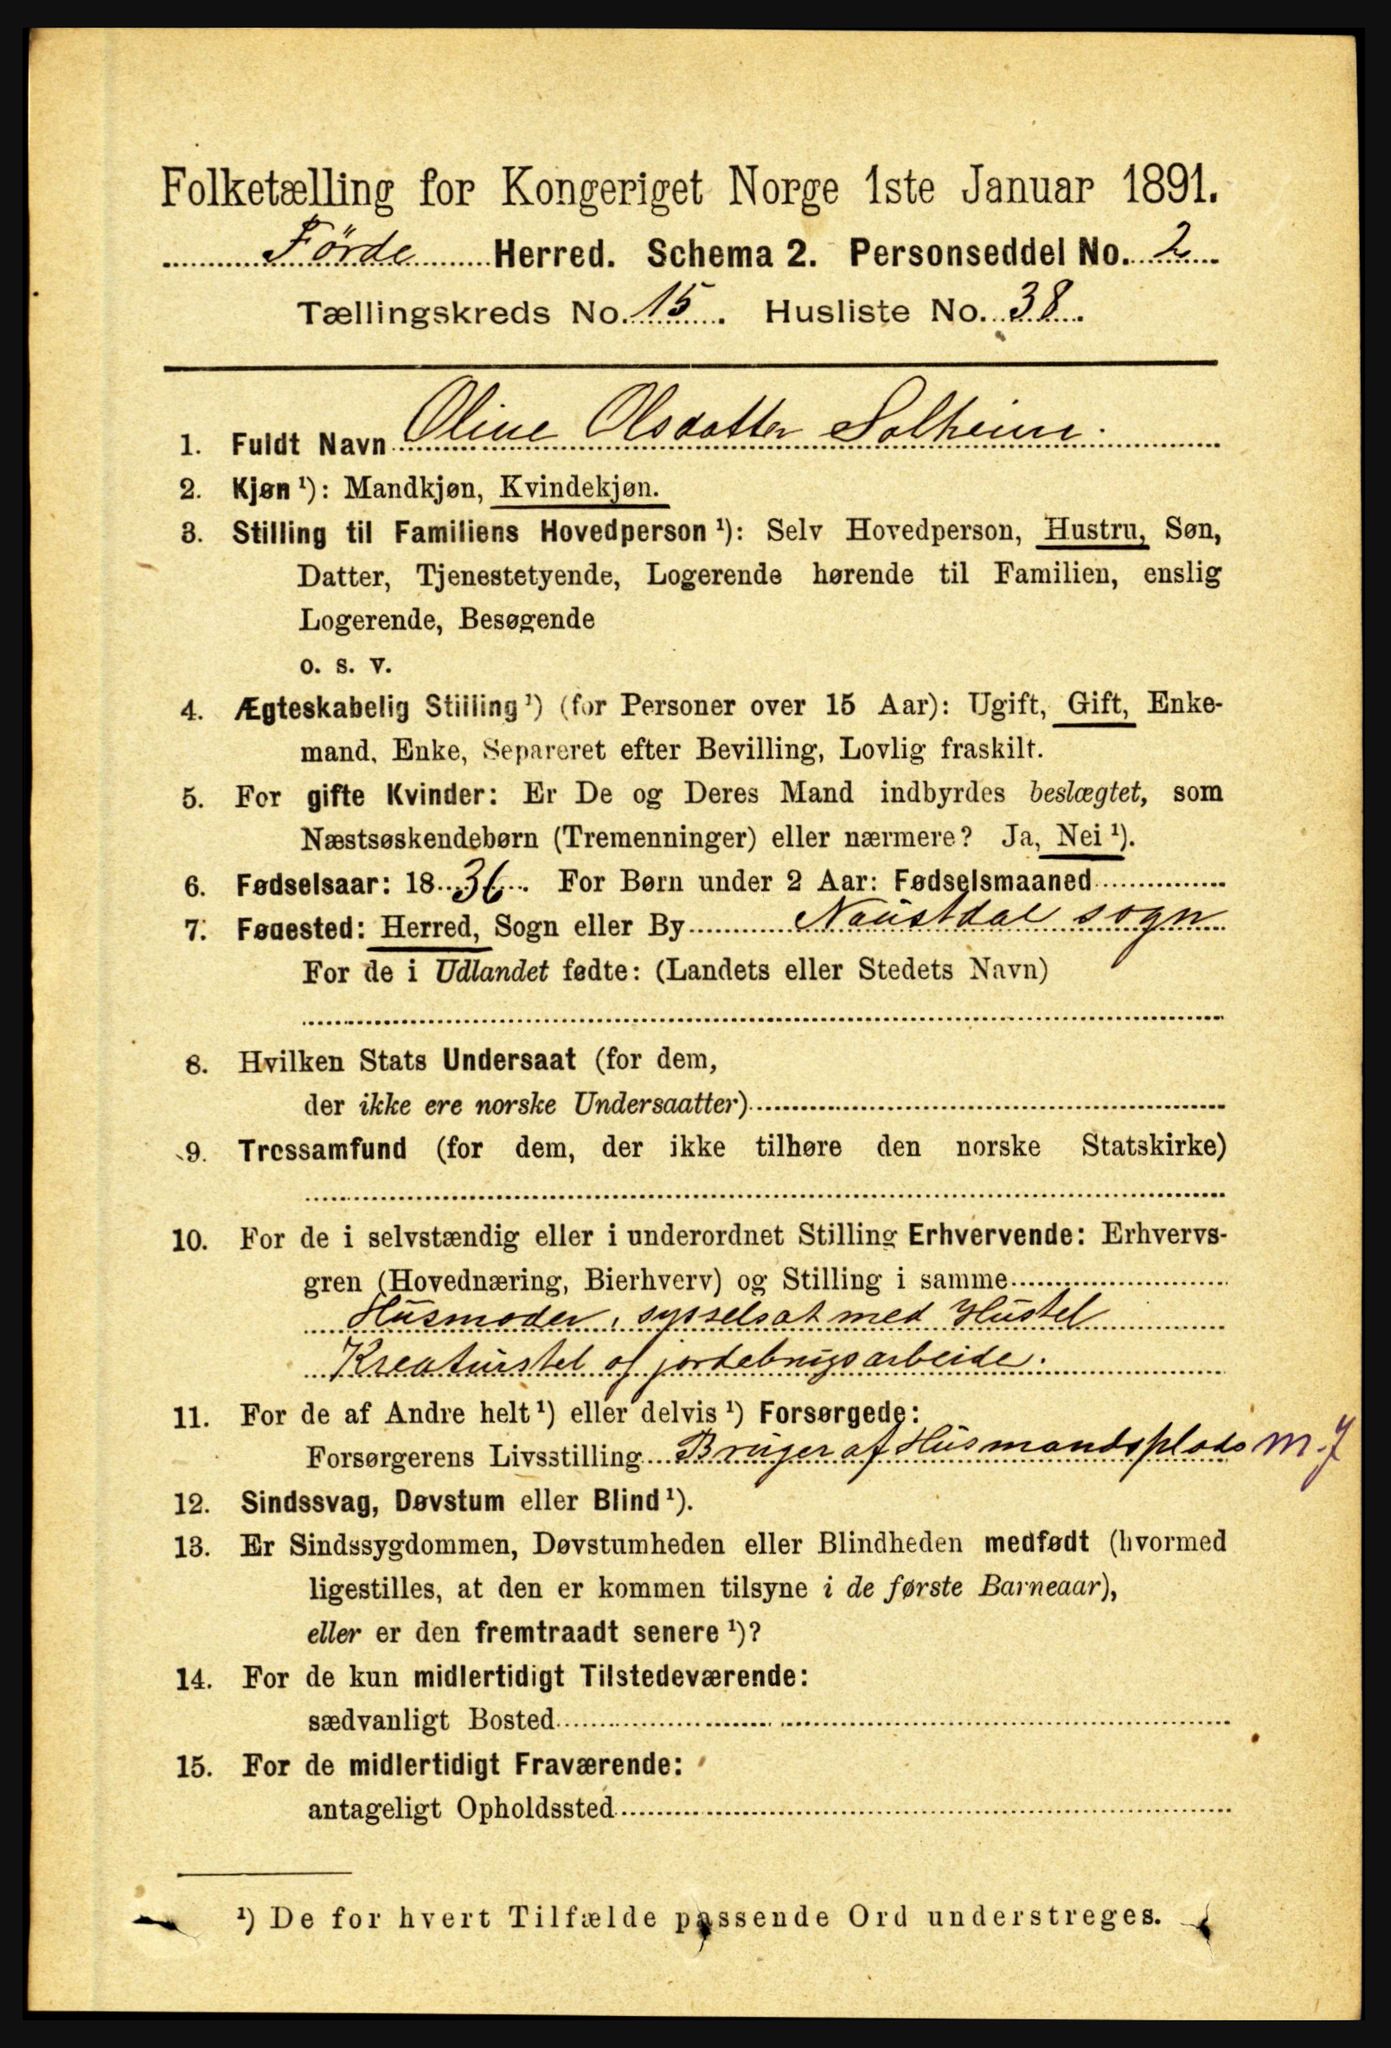 Folketælling for Kongeriget Norge 1ste Januar 1891.
Førde Herred. Schema 2. Personseddel No. 2
Tællingskreds No. 15. Husliste No. 38.
1. Fuldt Navn Oline Olsdatter Solheim.
2. Kjøn ¹): Mandkjøn, Kvindekjøn.
3. Stilling til Familiens Hovedperson ¹): Selv Hovedperson, Hustru, Søn,
Datter, Tjenestetyende, Logerende hørende til Familien, enslig
Logerende, Besøgende
o. s. v.
4. Ægteskabelig Stilling ¹) (for Personer over 15 Aar): Ugift, Gift, Enke-
mand, Enke, Separeret efter Bevilling, Lovlig fraskilt.
5. For gifte Kvinder: Er De og Deres Mand indbyrdes beslægtet, som
Næstsøskendebørn (Tremenninger) eller nærmere? Ja, Nei ¹).
6. Fødselsaar: 1836. For Børn under 2 Aar: Fødselsmaaned
7. Fødested: Herred, Sogn eller By Naustdal sogn
For de i Udlandet fødte: (Landets eller Stedets Navn)
8. Hvilken Stats Undersaat (for dem,
der ikke ere norske Undersaatter)
9. Trossamfund (for dem, der ikke tilhøre den norske Statskirke)
10. For de i selvstændig eller i underordnet Stilling Erhvervende: Erhvervs-
gren (Hovednæring, Bierhverv) og Stilling i samme
Husmoder, sysselsat med Hustel
Kreaturstel og jordebrugsarbeide.
11. For de af Andre helt ¹) eller delvis ¹) Forsørgede:
Forsørgerens Livsstilling Bruger af Husmandsplads m. J
12. Sindssvag, Døvstum eller Blind ¹).
13. Er Sindssygdommen, Døvstumheden eller Blindheden medfødt (hvormed
ligestilles, at den er kommen tilsyne i de første Barneaar),
eller er den fremtraadt senere ¹)?
14. For de kun midlertidigt Tilstedeværende:
sædvanligt Bosted
15. For de midlertidigt Fraværende:
antageligt Opholdssted
¹) De for hvert Tilfælde passende Ord understreges.